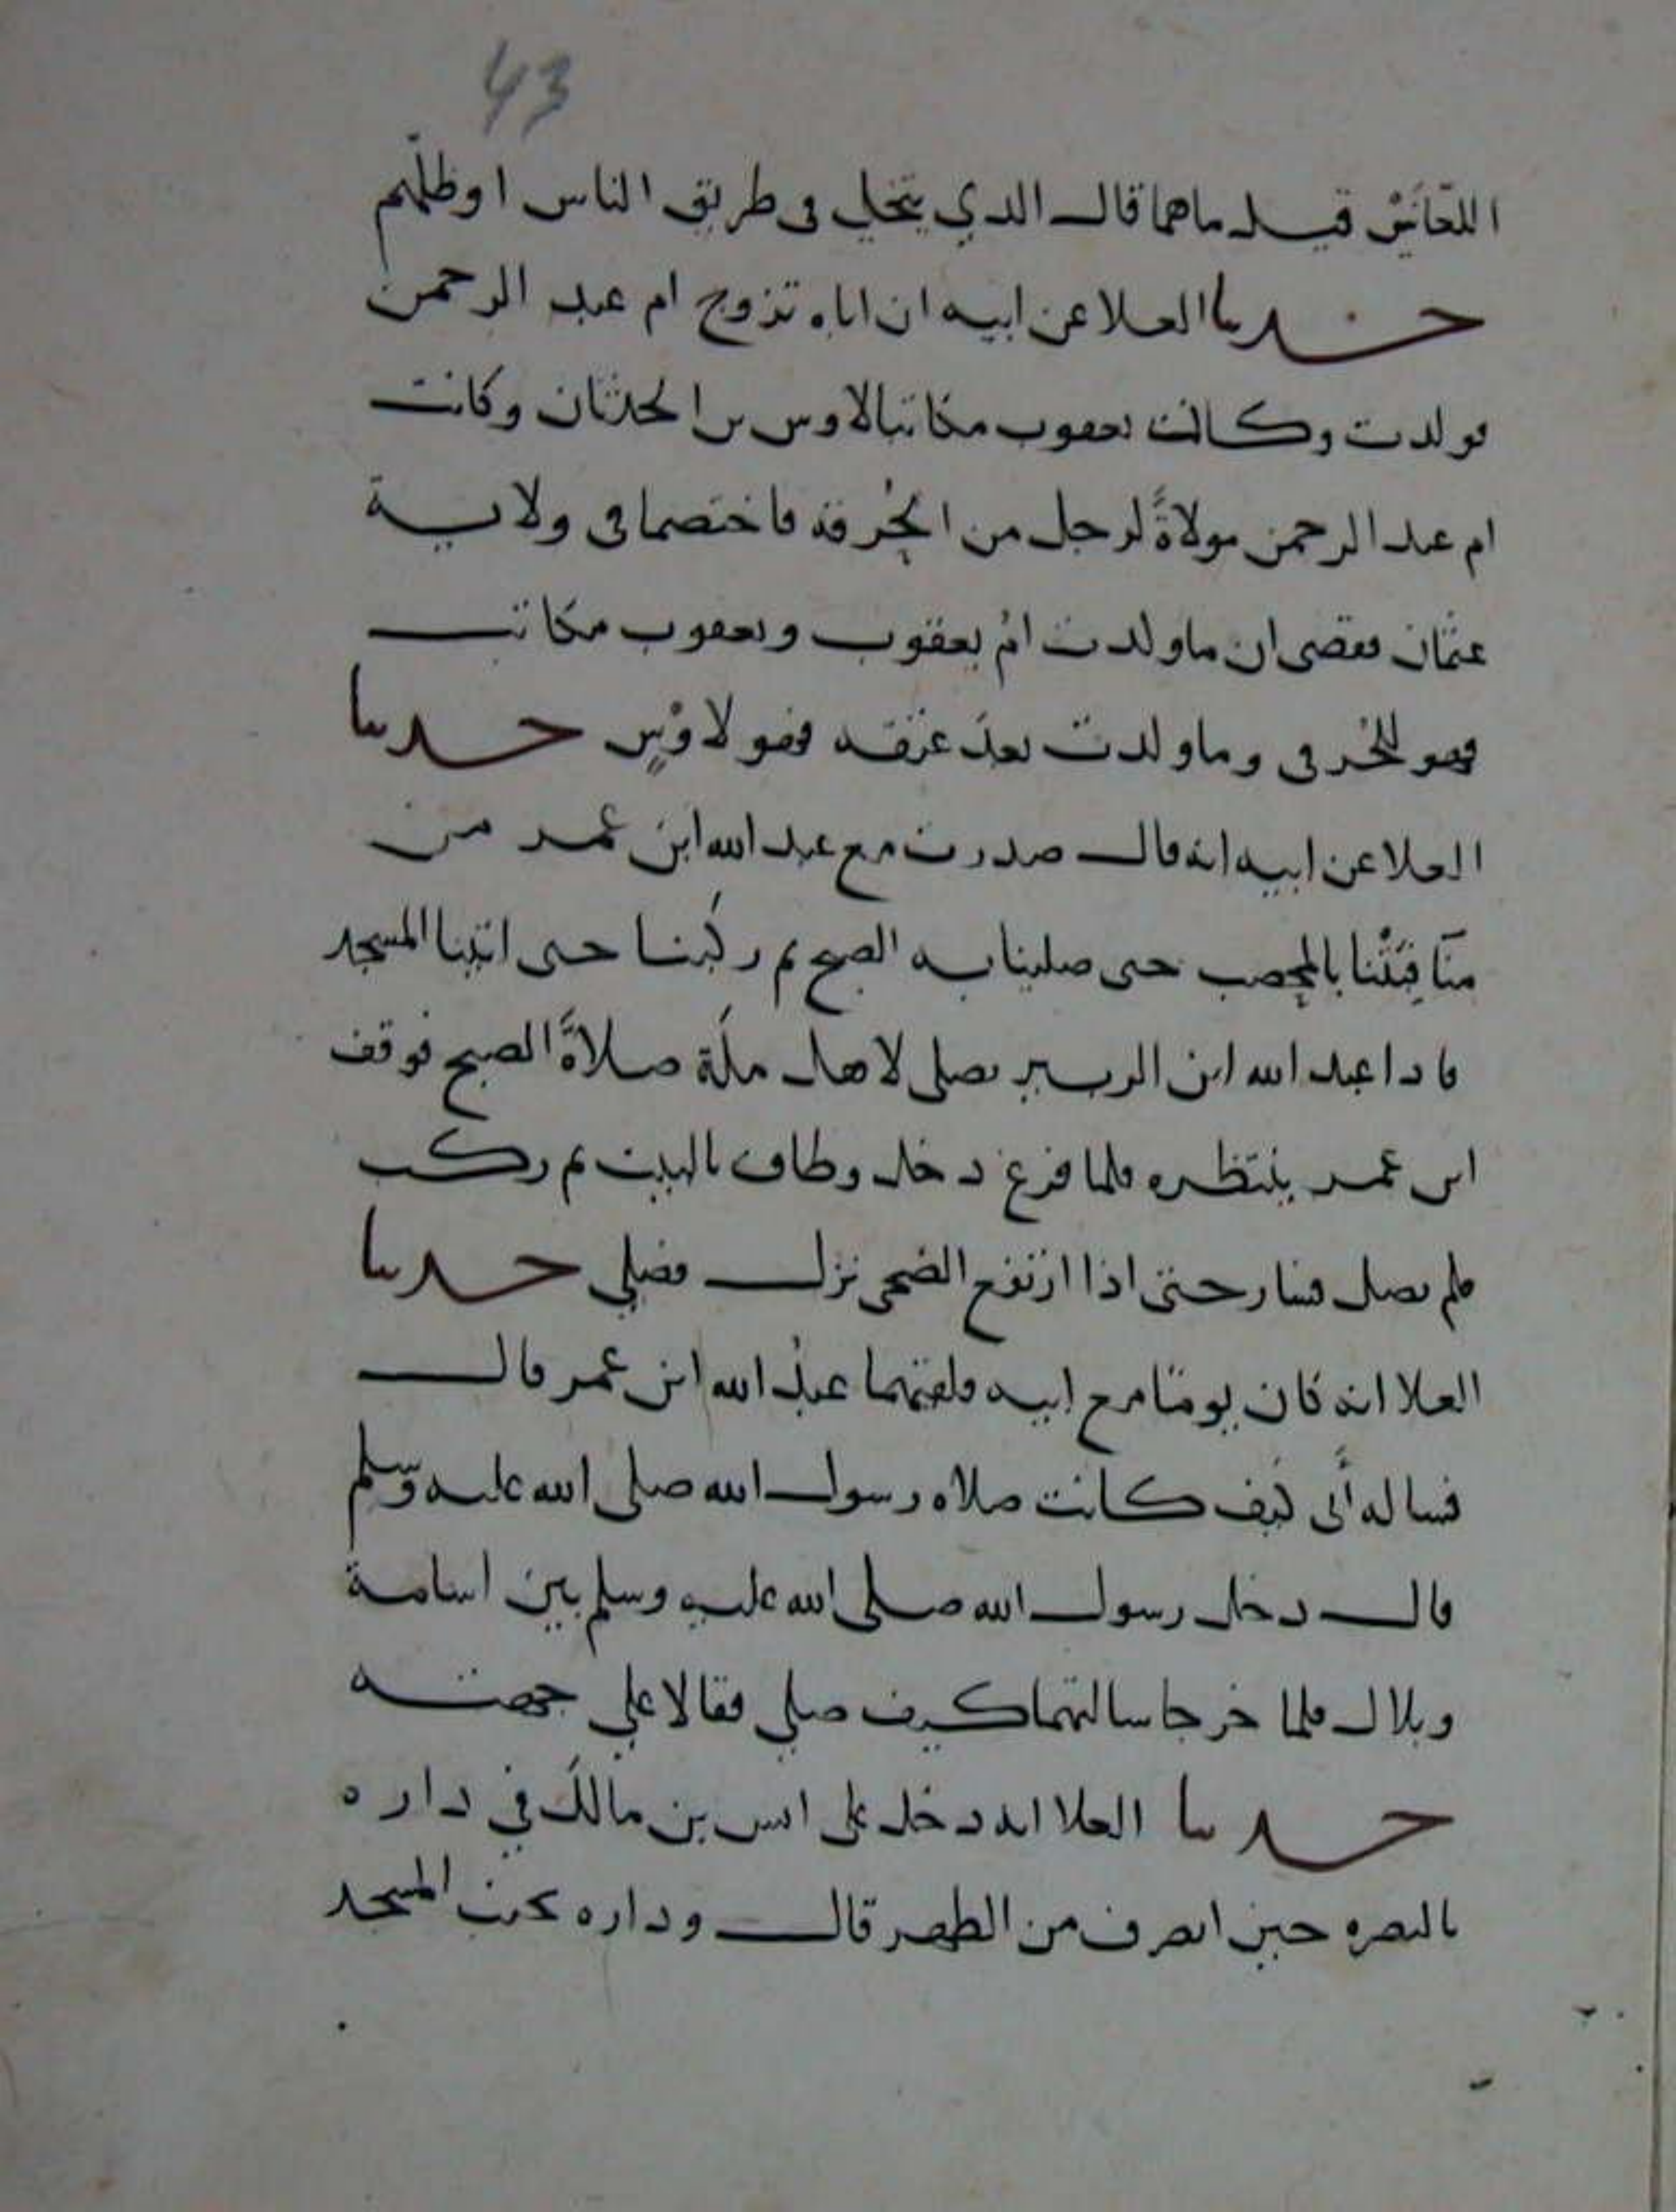 43
اللعانين قيل ما هما قال الذي يتخلى في طريق الناس او ظلهم
حدثنا العلا عن ابيه ان اباه تزوج ام عبد الرحمن
فولدت وكانت يعقوب مكاتبا لاوس بن الحدثان وكانت
ام عبد الرحمن مولاةً لرجل من الحُرقة فاختصما في ولاية
عثمان فقضى ان ما ولدت امُ يعقوب ويعقوب مكاتب
فهو للحُرقي وما ولدت بعدَ عتقه فهو لاوْسٍ حدثنا
العلا عن ابيه انه قال صدرت مع عبد الله ابن عمر من
منّا فبَتْنا بالمحصب حتى صلينا به الصبح ثم ركبنا حتى اتينا المسجد
فاذا عبد الله ابن الزبير يصلى لاهل مكة صلاةَ الصبح فوقف
ابن عمر ينتظره فلما فرغ دخل وطاف بالبيت ثم ركب
فلم يصل فسار حتى اذا ارتفع الضحى نزل فصلي حدثنا
العلا انه كان يومًا مع ابيه فلقيهما عبدُ الله ابن عمر قال
فساله أَبى كيف كانت صلاه رسول الله صلى الله عليه وسلم
قال دخل رسول الله صلى الله عليه وسلم بين اسامة
وبلال فلما خرجا سالتهما كيف صلي فقالا علي جهته
حدثنا العلا انه دخل على انس بن مالك في داره
بالبصره حين انصرف من الظهر قال وداره بجنب المسجد